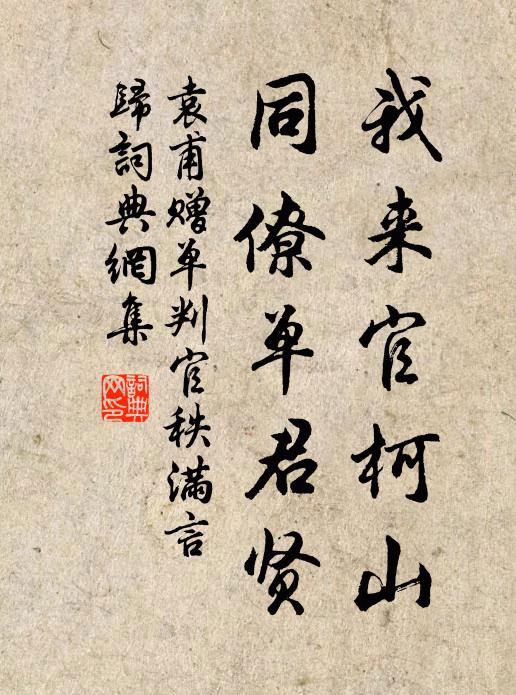 我来官柯山
同僚单君贤
袁甫赠单判官秩满言
歸詞典網集
詞典
网印